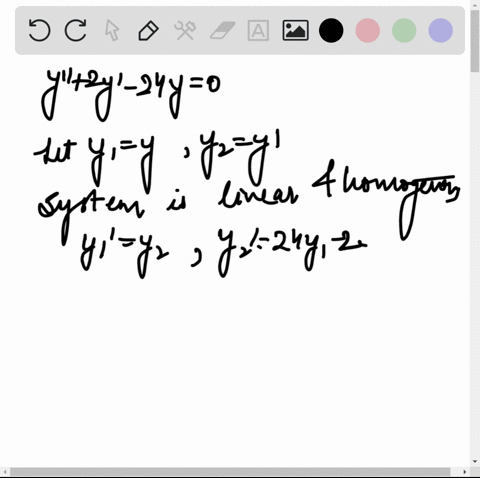 y''+2y'-24y=0
Let y₁=y , y₂=y'
system is linear & homogenous
y₁'=y₂ , y₂'=24y₁-2